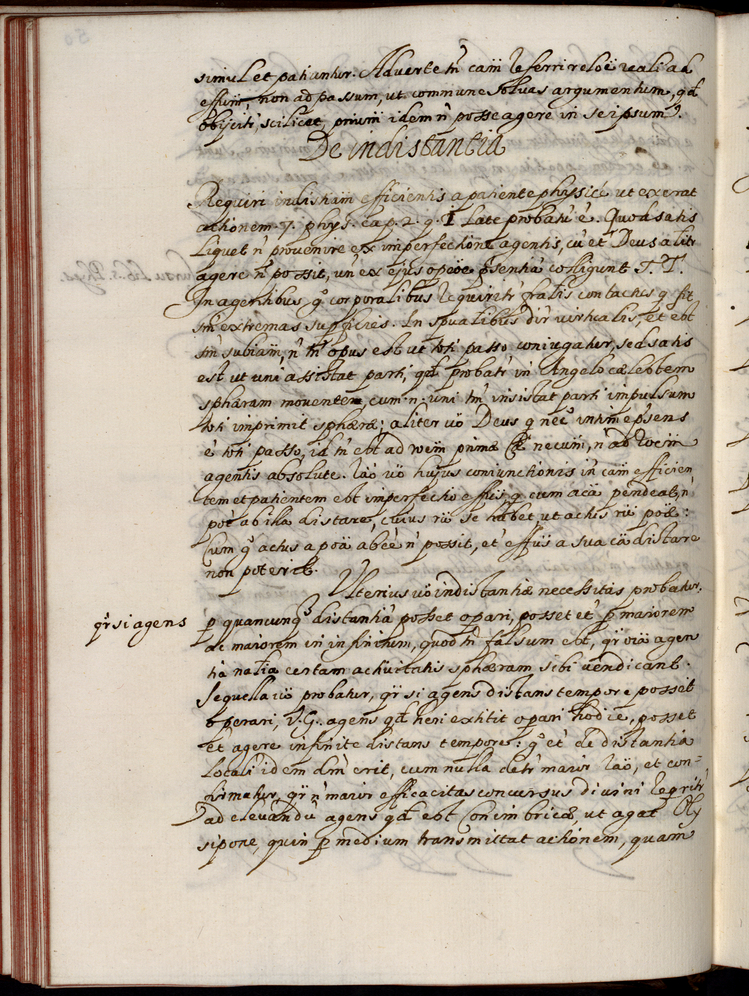 simul et patiuntur. Adverte tñ cam̃ referri reloẽ reali ad
effum̃, non ad passum, ut commune solvas argumentum, qđ
obijciti, scilicet, prium̃ idem ñ posse agere in se ipsum.
De indistantia
Requiri indistiam efficientis a patiente physicè ut exerat
actionem. 7. phys. cap. 2. q. 1 late probatr̃ ẽ. Quod satis
liquet ñ provenire ex imperfectione agentis, cũ et Deus alitr̃
agere ñ possit, un̄ ex ejus opõe psentiã colligunt S. T.
In agentibus g̊ corporalibus requiritr̃ fralis contactus q fit
sm̃ extremas superficies. In spualibus dir̃ virtualis, et ebt
sm̃ subiam̃, ñ tñ opus est ut toti passo coniugatur, sed satis
est ut uni assistat parti, qđ probatr̃ in Angelo cælestem
sphæram movente, cum .n. uni tm̃ insistat parti impulsum
toti imprimit sphæræ; aliter ũo Deus q necõ intime psens
ẽ toti passo, id tñ ebt ad roem̃ primæ cæ necum̃, ñ ad roem̃
agentis absolute. raõ ũo hujus coniunctionis in cam̃ efficien
tem et patientem ebt imperfectio effus q cum a cã pendeat, ñ
poẽ ab illa distare, cuius rõ se habet, ut actus rũ poæ:
Cum g̊ actus a poã abeẽ ñ possit, et effus a sua cã distare
non poterit.
Ulterius ũo indistantiæ necessitas probatur,
qr̃ si agens ꝑ quancunq̃ distantiã posset opari, posset et ꝑ maiorem
ac maiorem in infinitum, quod tñ falsum ebt, qr̃ oiã agen
tia nãlia certam activitatis sphæram sibi vendicant.
Sequella ũo probatur, qr̃ si agens distans tempore posset
operari, V.G. agens qđ heri extitit opari hodie, posset
et agere infinite distans tempore: g̊ et de distantia
locali idem dm̃ erit, cum nulla detr̃ maior raõ, et con-
firmatur, qr̃ ñ maior efficacitas concursus divini reqritr̃
ad elevandũ agens qđ ebt Conimbricæ, ut agat Oly
sipone, quin ꝑ medium transmittat actionem, quam